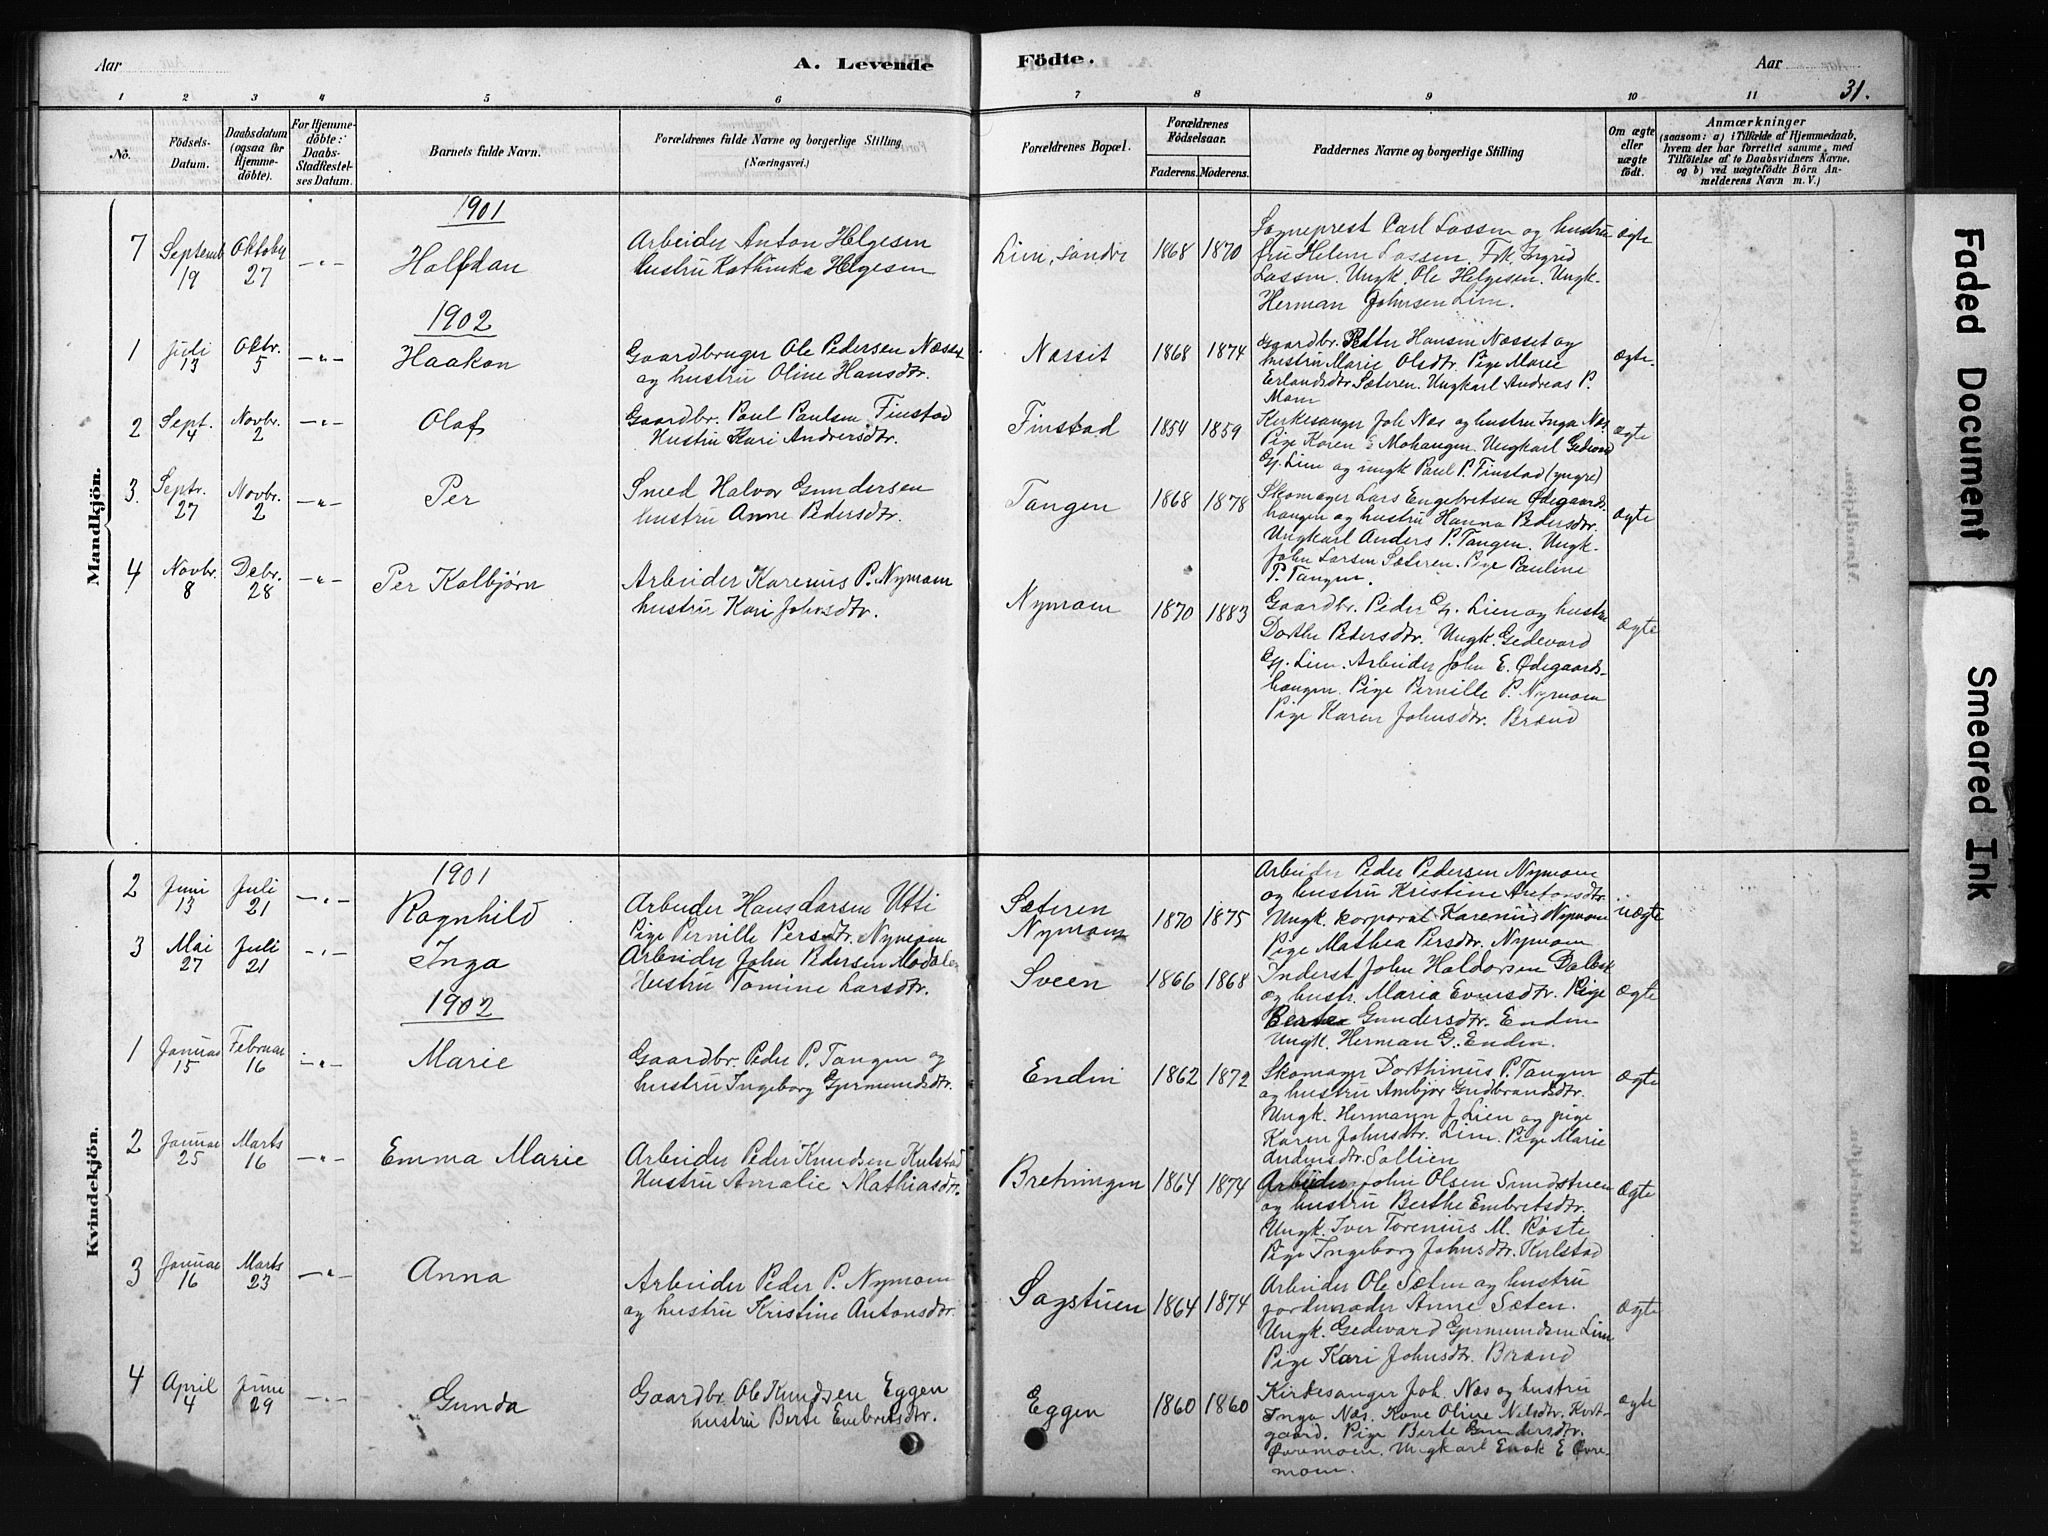 Aar
A. Levende Födte.
Aar
31.
1 2 3 4 5 6 7 8 9 10 11
No.
Födsels-Datum.
Daabsdatum (ogsaa for Hjemme-döbte).
For Hjemme-döbte: Daabs-Stadfæstel-ses Datum.
Barnets fulde Navn.
Forældrenes fulde Navne og borgerlige Stilling (Næringsvei.)
Forældrenes Bopæl.
Forældrenes Födselsaar.
Faderens. Moderens.
Faddernes Navne og borgerlige Stilling
Om ægte eller uægte födt.
Anmærkninger
(saasom: a) i Tilfælde af Hjemmedaab, hvem der har forrettet samme, med Tilföielse af to Daabsvidners Navne, og b) ved uægtefödte Börn Anmelderens Navn m. V.)
Mandkjön.
1901
7 Septemb 19 Oktober 27 -"- Halfdan
Arbeider Anton Helgesen
hustru Kathinka Helgesen
Lien, Søndre 1868 1870
Sogneprest Carl Lassen og hustru
fru Helene Lassen. Frk. Ingrid
Lassen. Ungk. Ole Helgesen. Ungk.
Herman Johnsen Lien.
ægte
1902
1 Juli 13 Oktr. 5 -"- Haakon
Gaardbruger Ole Pedersen Næsset
og hustru Oline Hansdtr.
Næsset 1868 1874
Gaardbr. Petter Hansen Næsset og
hustru Marie Olsdtr. Pige Marie
Erlandsdtr Sæteren. Ungkarl Andreas P.
Moen
ægte.
2 Sept. 4 Novbr. 2 -"- Olaf
Gaardbr. Paul Paulsen Finstad
Hustru Kari Andersdtr.
Finstad 1854 1859
Kirkesanger Joh Næs og hustru Inga Næs.
Pige Karen E Mohaugen. Ungkarl Gedevard
Gj. Lien og ungk Paul P. Finstad (yngre)
ægte
3. Septr. 27 Novbr. 2 -"- Per
Smed Halvor Gundersen
hustru Anne Pedersdtr.
Tangen 1868 1878
Skomager Lars Engebretsen Ødegaards-
haugen og hustru Hanna Pedersdtr.
Ungkarl Anders P. Tangen. Ungk.
John Larsen Sæteren. Pige Pauline
P. Tangen.
ægte
4 Novbr. 8 Debr. 28 -"- Per Kolbjørn
Arbeider Karenius P. Nymoen
hustru Kari Johnsdtr.
Nymoen 1870 1883
Gaardbr. Peder Gj. Lien og hustru
Dorthe Pedersdtr. Ungk. Gedevard
Gj. Lien. Arbeider John E. Ødegaards-
haugen. Pige Pernille P. Nymoen
Pige Karen Johnsdtr. Brænd
ægte
Kvindekjön.
1901
2 Juni 13 Juli 21 -"- Ragnhild
Arbeider Hans Larsen Utti
Pige Pernille Persdtr. Nymoen
Sæteren
Nymoen 1870 1875
Arbeider Peder Pedersen Nymoen
og hustru Kristine Antonsdtr.
Ungk. korporal Karenius Nymoen
Pige Mathea Persdtr. Nymoen
uægte
3 Mai 27 Juli 21 -"- Inga
Arbeider John Pedersen Modalen
hustru Tomine Larsdtr.
Sveen 1866 1868
Inderst John Haldorsen
og hustr. Maria Evensdtr. Pige
Berte Gundersdtr. Enden
Ungk. Herman G. Enden.
ægte
1902
1 Januar 15 Februar 16 -"- Marie
Gaardbr. Peder P. Tangen og
hustru Ingeborg Gjermundsdtr.
Enden 1862 1872
Skomager Dorthinus P. Tangen
og hustru Ambjør Gudbrandsdtr.
Ungk. Hermann J. Lien og pige
Karen Johnsdtr. Lien. Pige Marie
Andersdtr. Sollien
ægte
2 Januar 25 Marts 16 -"- Emma Marie
Arbeider Peder Knudsen Kulstad
Hustru Amalie Mathiasdtr.
Bretningen 1864 1874
Arbeider John Olsen Sandstuen
og hustru Berthe Embretsdtr.
Ungk. Iver Torenius M. Røste
Pige Ingeborg Johnsdtr. Kulstad
ægte
3 Januar 16 Marts 23 -"- Anna
Arbeider Peder P. Nymoen
og hustru Kristine Antonsdtr.
Sagstuen 1864 1874
Arbeider Ole Sæten og hustru
jordemoder Anne Sæten.
Ungk. Gedevard Gjermundsen Lien
Pige Kari Johnsdtr. Brænd
ægte
4 April 4 June 29 -"- Gunda
Gaardbr. Ole Knudsen Eggen
hustru Berte Embretsdtr.
Eggen 1860 1860
Kirkesanger Joh. Næs og hustru
Inga Næs. Kone Oline Nilsdtr. Kvot-
gaard. Pige Berte Gundersdtr.
Øvremoen. Ungkarl Enok E Øvre-
moen.
ægte
Faded Document
Smeared Ink